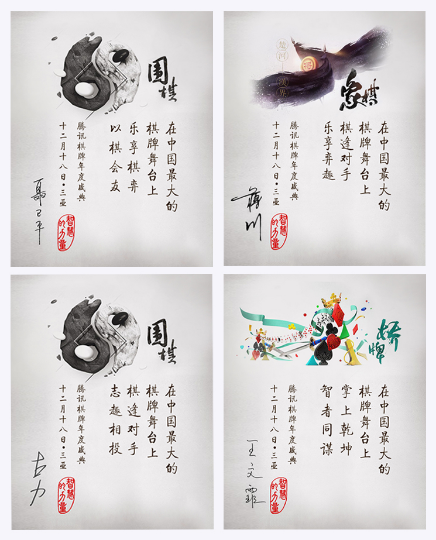 围棋
在中国最大的
棋牌舞台上
乐享棋弈
以棋会友
腾讯棋牌年度盛典
十二月十八日·三亚
智慧的力量
象棋
在中国最大的
棋牌舞台上
棋逢对手
乐享弈趣
腾讯棋牌年度盛典
十二月十八日·三亚
蒋川
智慧的力量
围棋
在中国最大的
棋牌舞台上
棋逢对手
志趣相投
腾讯棋牌年度盛典
十二月十八日·三亚
古力
智慧的力量
桥牌
在中国最大的
棋牌舞台上
掌上乾坤
智者同谋
腾讯棋牌年度盛典
十二月十八日·三亚
王文霏
智慧的力量